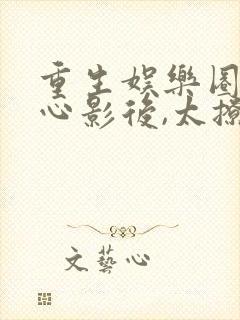 重生娛樂圈
心影後,太撩
文藝心